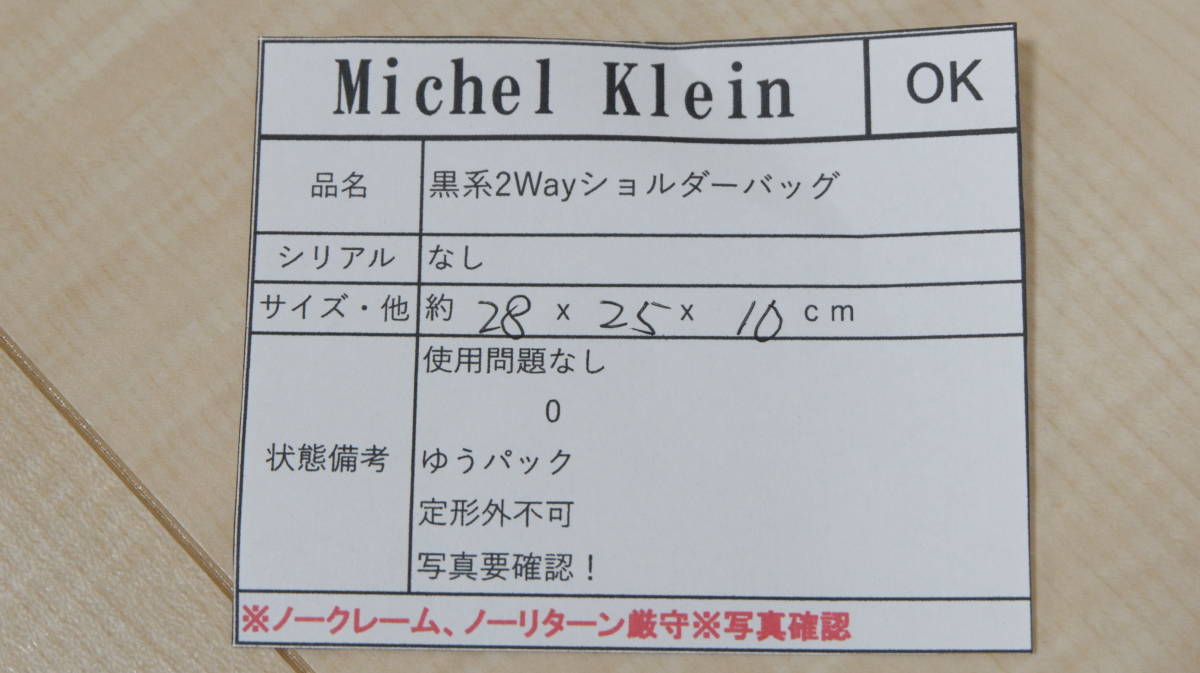 Michel Klein OK
品名 黒系2Wayショルダーバッグ
シリアル なし
サイズ・他 約 28 x 25 x 10 cm
状態備考
使用問題なし
0
ゆうパック
定形外不可
写真要確認！
※ノークレーム、ノーリターン厳守※写真確認